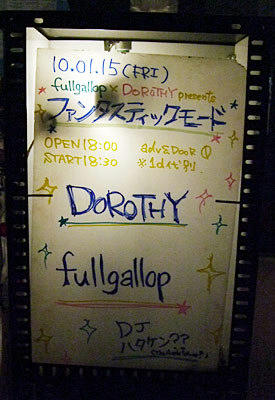 10.01.15(FRI)
fullgallop × DOROTHY presents
ファンタスティックモード
OPEN 18:00 adv&DOOR
START 18:30 ※1d代別
DOROTHY
fullgallop
DJ
ハタケン??